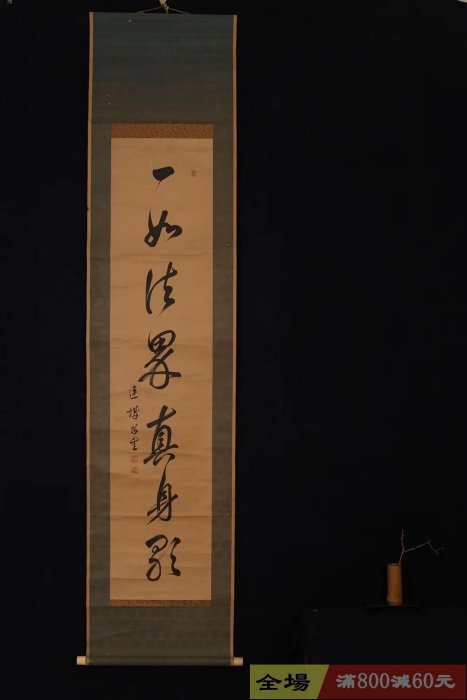 一如法界真身影
全場
滿800減60元